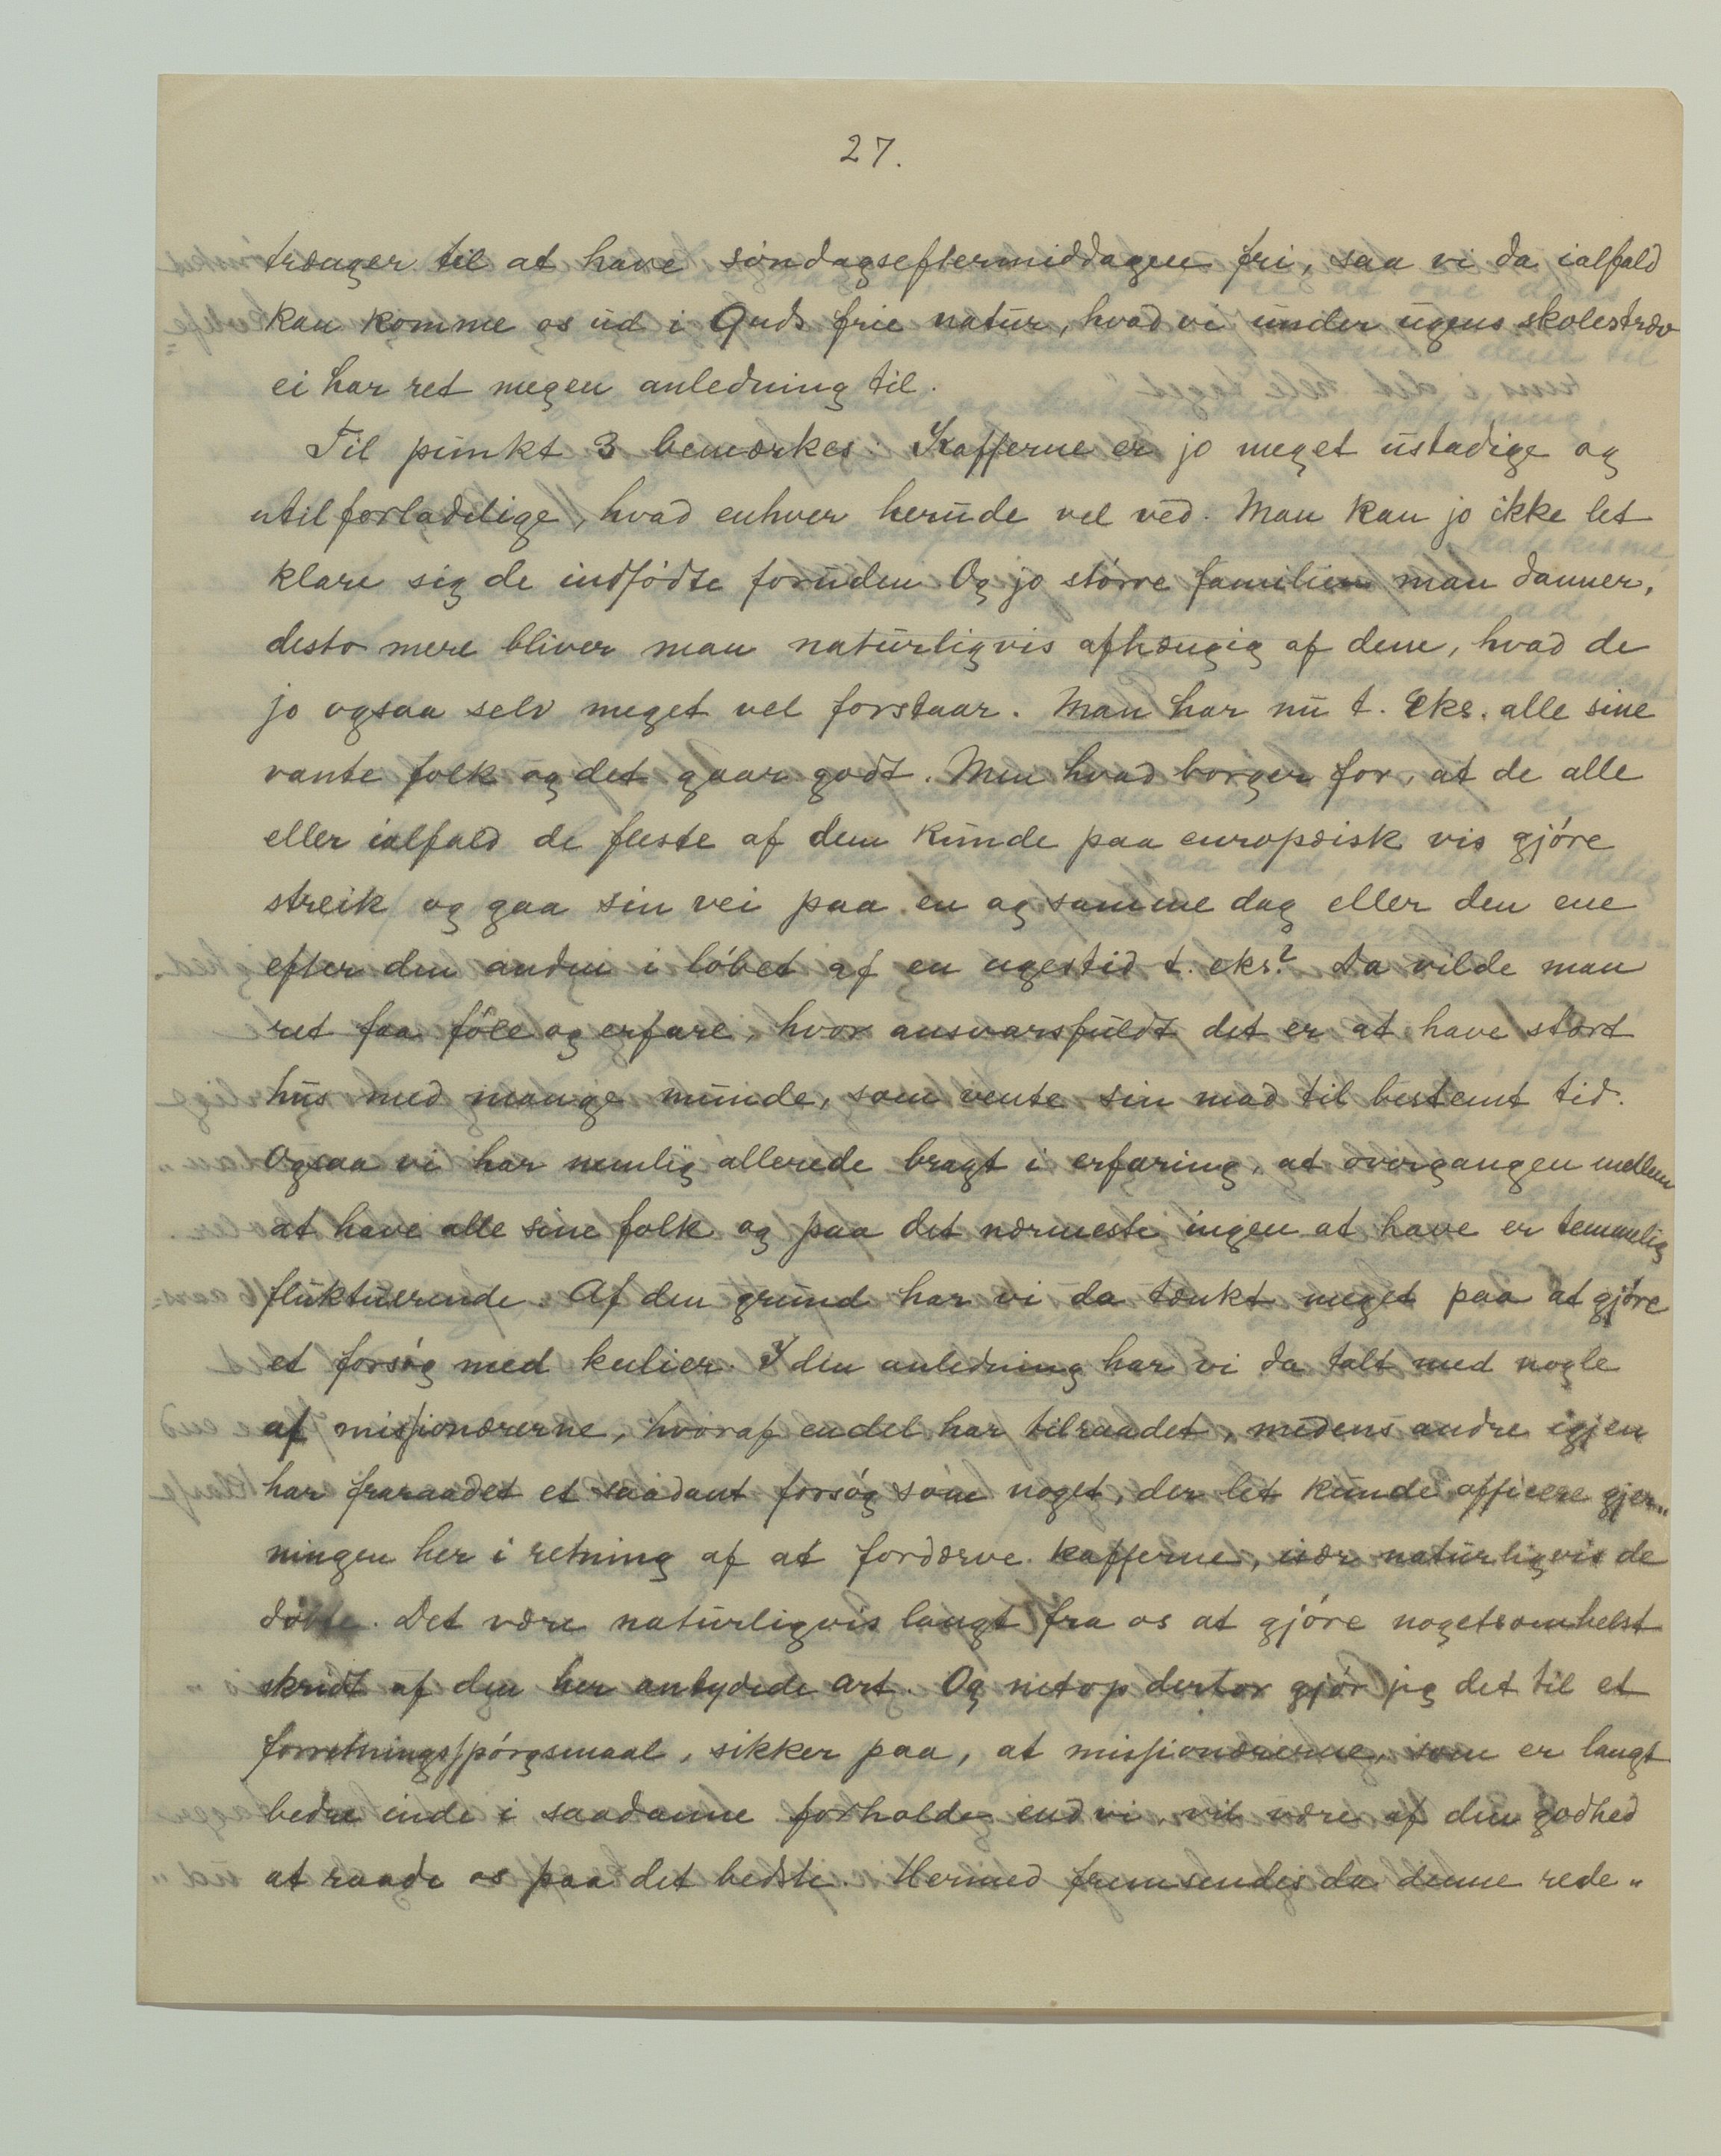 27.
trænger til at have söndagseftermiddagen fri, saa vi da ialfald
kan komme os ud i Guds frie natur, hvad vi under ugens skolestræv
ei har ret megen anledning til.
Til punkt 3 bemærkes: Kafferne er jo meget ustadige og
utilforladelige, hvad enhver herude vel ved. Man kan jo ikke let
klare sig de indfödte foruden. Og jo större familien man danner,
desto mere bliver man naturligvis afhængig af dem, hvad de
jo ogsaa selv meget vel forstaar. Man har nu t. Eks. alle sine
vante folk og det gaar godt. Men hvad borger for, at de alle
eller ialfald de fleste af dem kunde paa europæisk vis gjöre
streik og gaa sin vei paa en og samme dag eller den ene
efter den anden i löbet af en ugestid t. eks.? Da vilde man
ret faa föle og erfare, hvor ansvarsfuldt det er at have stort
hus med mange munde, som vente sin mad til bestemt tid.
Ogsaa vi har nemlig allerede bragt i erfaring, at overgangen mellem
at have alle sine folk og paa det nærmeste ingen at have er temmelig
fluktuerende. Af den grund har vi da tænkt meget paa at gjöre
et forsög med kulier. I den anledning har vi da talt med nogle
af missionærerne, hvoraf endel har tilraadet, medens andre igjen
har fraraadet et saadant forsög som noget, der let kunde afficere gjer„
ningen her i retning af at fordærve kafferne, især naturligvis de
döbte. Det være naturligvis langt fra os at gjöre nogetsomhelst
skridt af den her antydede art. Og netop derfor gjör jeg det til et
forretningsspörgsmaal, sikker paa, at missionærerne, som er langt
bedre inde i saadanne forholde end vi, vil være af den godhed
at raade os paa det bedste. Hermed fremsendes da denne rede„